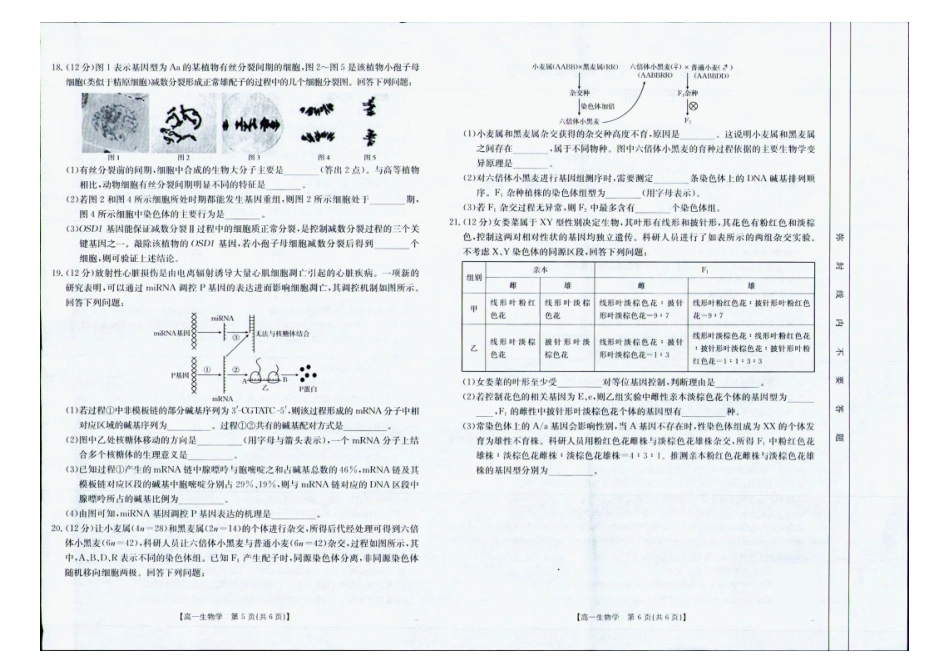 18.(12分)图1表示基因型为Aa的某植物有丝分裂间期的细胞,图2~图5是该植物小孢子母
细胞(类似于精原细胞)减数分裂形成正常雄配子的过程中的几个细胞分裂图。回答下列问题:
图1 图2 图3 图4 图5
(1)有丝分裂前的间期,细胞中合成的生物大分子主要是________(答出2点)。与高等植物
相比,动物细胞有丝分裂间期明显不同的特征是________。
(2)若图2和图4所示细胞所处时期都能发生基因重组,则图2所示细胞处于________期,
图4所示细胞中染色体的主要行为是________。
(3)OSD1基因能保证减数分裂Ⅱ过程中的细胞质正常分裂,是控制减数分裂过程的三个关
键基因之一。敲除该植物的OSD1基因,若小孢子母细胞减数分裂后得到________个
细胞,则可验证上述结论。
19.(12分)放射性心脏损伤是由电离辐射诱导大量心肌细胞凋亡引起的心脏疾病。一项新的
研究表明,可以通过miRNA调控P基因的表达进而影响细胞凋亡,其调控机制如图所示。
回答下列问题:
miRNA
miRNA基因 ③ 无法与核糖体结合
P基因 ① ② A B
乙 P蛋白
mRNA
(1)若过程①中非模板链的部分碱基序列为3'-CGTATC-5',则该过程形成的mRNA分子中相
对应区域的碱基序列为________。过程①②共有的碱基配对方式是________。
(2)图中乙处核糖体移动的方向是________(用字母与箭头表示),一个mRNA分子上结
合多个核糖体的生理意义是________。
(3)已知过程①产生的mRNA链中腺嘌呤与胞嘧啶之和占碱基总数的46%,mRNA链及其
模板链对应区段的碱基中胞嘧啶分别占29%、19%,则与mRNA链对应的DNA区段中
腺嘌呤所占的碱基比例为________。
(4)由图可知,miRNA基因调控P基因表达的机理是________。
20.(12分)让小麦属(4n=28)和黑麦属(2n=14)的个体进行杂交,所得后代经处理可得到六倍
体小黑麦(6n=42),科研人员让六倍体小黑麦与普通小麦(6n=42)杂交,过程如图所示,其
中,A、B、D、R表示不同的染色体组。已知F₁产生配子时,同源染色体分离,非同源染色体
随机移向细胞两极。回答下列问题:
【高一生物学 第5页(共6页)】
小麦属(AABB)×黑麦属(RR) 六倍体小黑麦(♀)×普通小麦(♂)
(AABBRR) (AABBDD)
杂交种 F₁杂种
染色体加倍
六倍体小黑麦 F₂
(1)小麦属和黑麦属杂交获得的杂交种高度不育,原因是________。这说明小麦属和黑麦属
之间存在________,属于不同物种。图中六倍体小黑麦的育种过程依据的主要生物学变
异原理是________。
(2)对六倍体小黑麦进行基因组测序时,需要测定________条染色体上的DNA碱基排列顺
序。F₁杂种植株的染色体组型为________(用字母表示)。
(3)若F₁杂交过程无异常,则F₂中最多含有________个染色体组。
21.(12分)女娄菜属于XY型性别决定生物,其叶形有线形和披针形,其花色有粉红色和淡棕
色,控制这两对相对性状的基因均独立遗传。科研人员进行了如表所示的两组杂交实验。
不考虑X、Y染色体的同源区段,回答下列问题:
组别 亲本 F₁
雌 雄 雌 雄
甲 线形叶粉红色花 线形叶淡棕色花 线形叶淡棕色花:披针形叶淡棕色花=9:7 线形叶粉红色花:披针形叶粉红色花=9:7
乙 线形叶淡棕色花 披针形叶淡棕色花 线形叶淡棕色花:披针形叶淡棕色花=1:3 线形叶淡棕色花:线形叶粉红色花:披针形叶淡棕色花:披针形叶粉红色花=1:1:3:3
(1)女娄菜的叶形至少受________对等位基因控制,判断理由是________。
(2)若控制花色的相关基因为E、e,则乙组实验中雌性亲本淡棕色花个体的基因型为
________,F₁的雌性中披针形叶淡棕色花个体的基因型有________种。
(3)常染色体上的A/a基因会影响性别,当A基因不存在时,性染色体组成为XX的个体发
育为雄性不育株。科研人员用粉红色花雌株与淡棕色花雄株杂交,所得F₁中粉红色花
雄株:淡棕色花雌株:淡棕色花雄株=4:3:1。推测亲本粉红色花雌株与淡棕色花雄
株的基因型分别为________。
【高一生物学 第6页(共6页)】
密
封
线
内
不
要
答
题